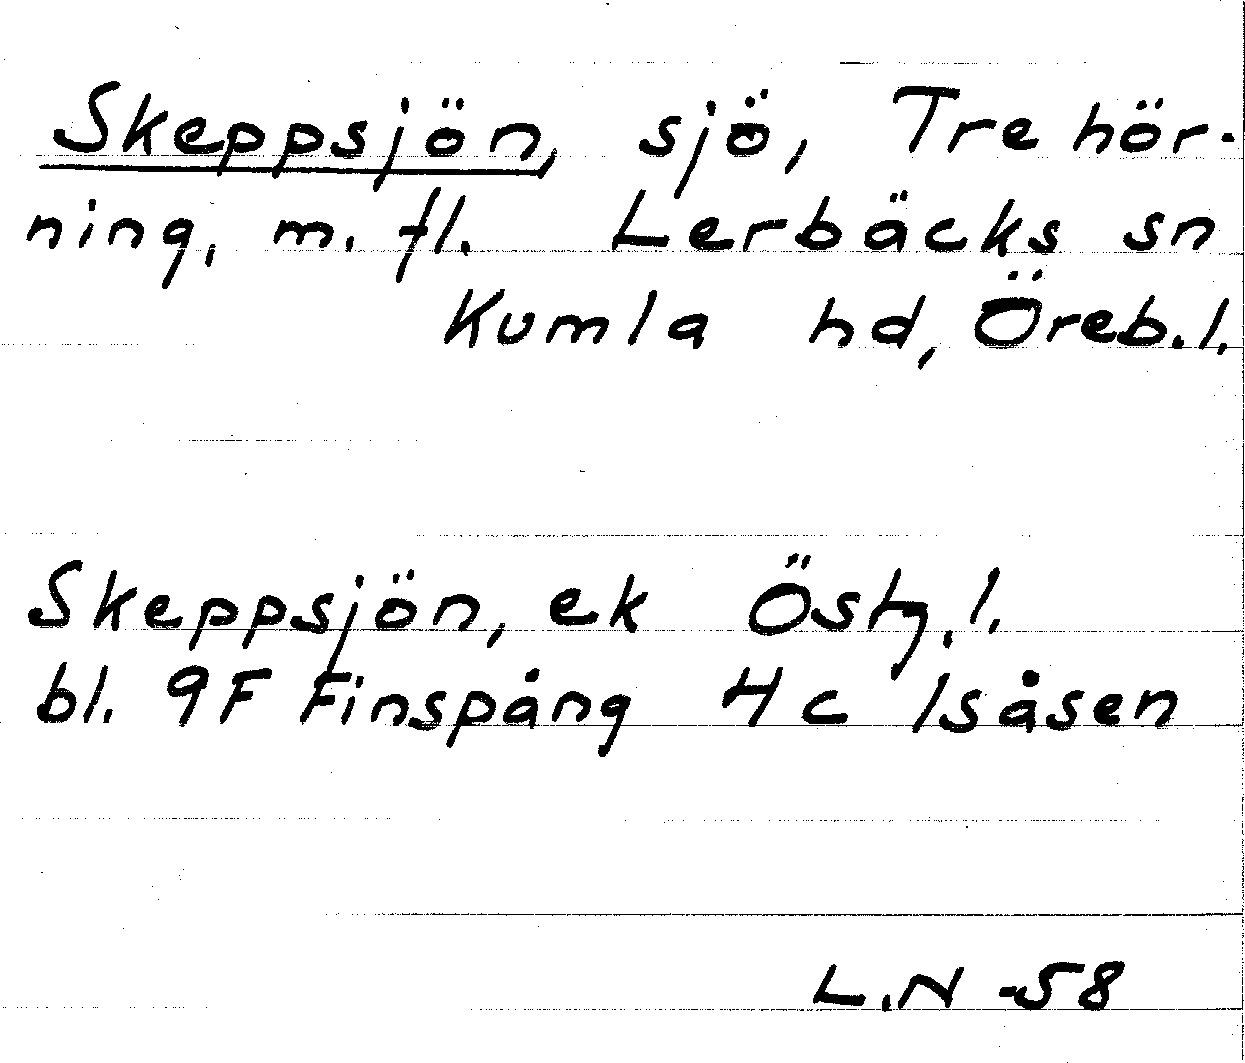 Skeppsjön, sjö, Trehör-
ning, m. fl. Lerbäcks sn
Kumla hd, Öreb.l.
Skeppsjön, ek Östg.l.
bl. 9F Finspång 4c Isåsen
L.N -58